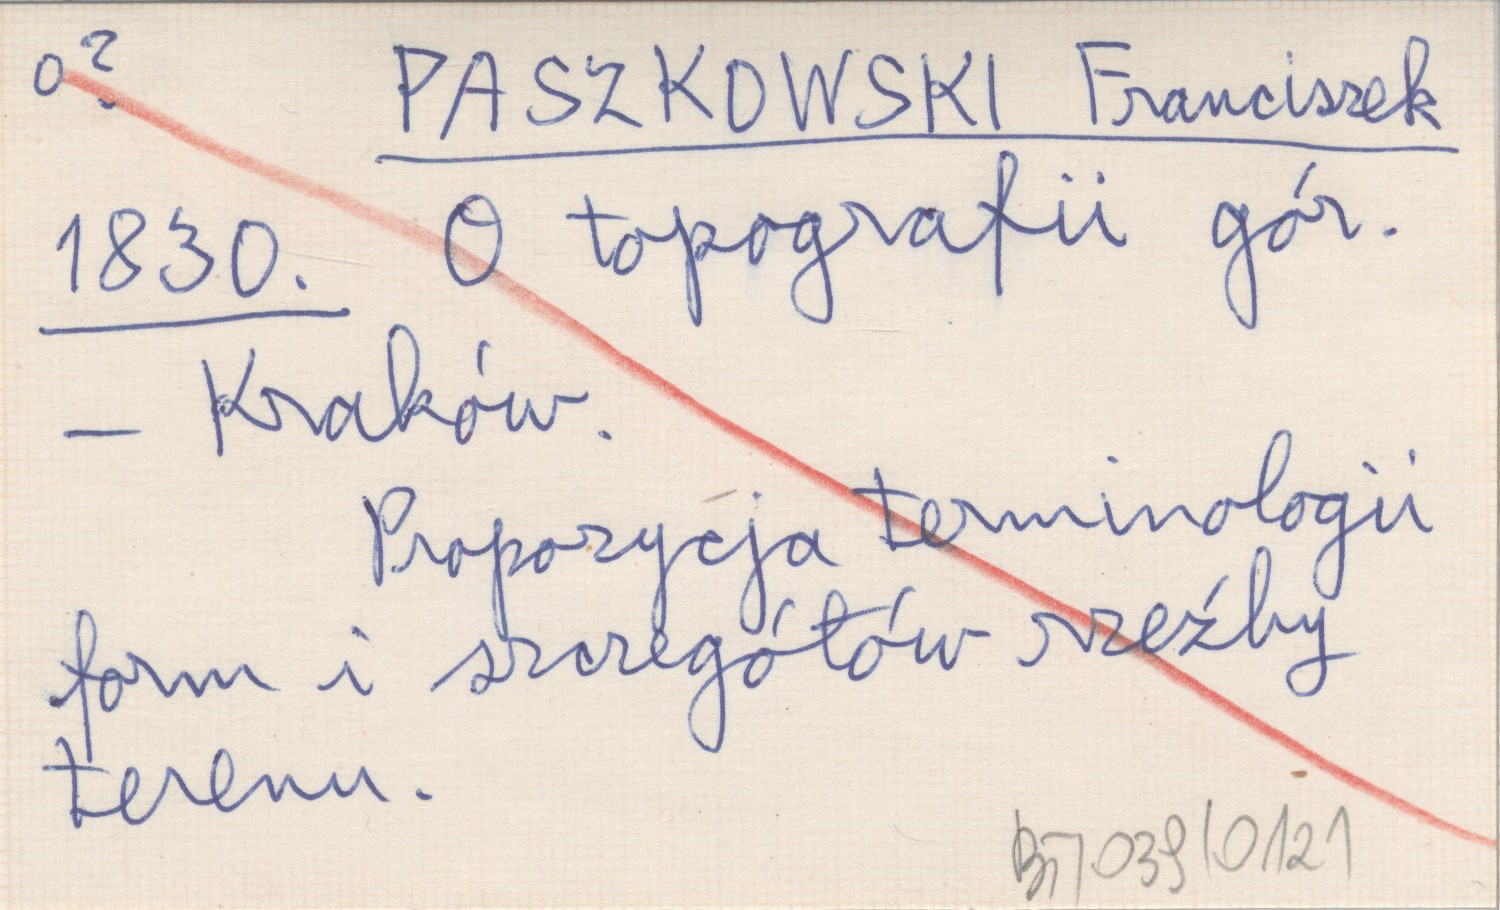 o?
PASZKOWSKI Franciszek
1830. O topografii gór.
– Kraków.
Propozycja terminologii
form i szczegółów rzeźby
terenu.
039/0121